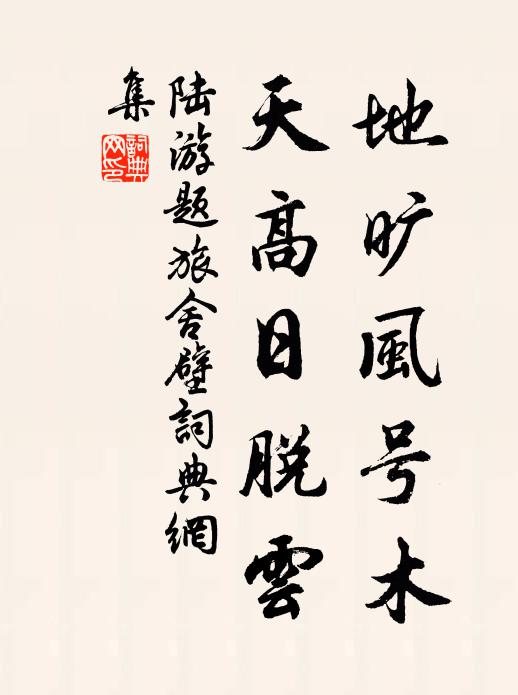 地旷風号木
天高日脱雲
陆游题旅舍壁詞典網
集
詞典
网印